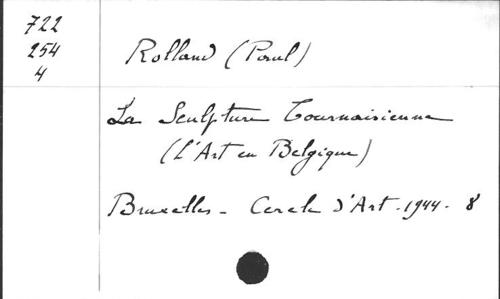 722
254
4
Rolland (Paul)
La Sculpture Tournaisienne
(L'Art en Belgique)
Bruxelles - Cercle d'Art - 1944 - 8